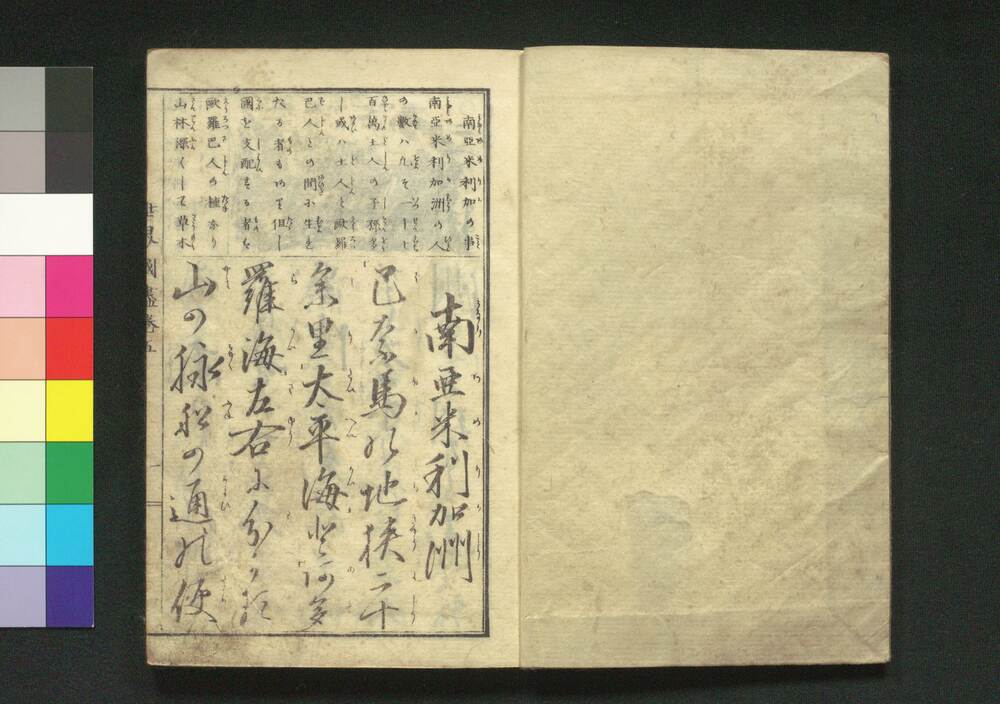 南亜米利加の事
南亜米利加洲の人
の數ハ凡そ一千七
百萬土人の子孫多
し或ハ土人と歐羅
巴人との間に生れ
たる者もあり但し
國を支配する者は
歐羅巴人の種なり
山林深くして草木
南亜米利加洲
巴奈馬の地狭二十
余里太平海と阿多
羅海左右に分かつ
山の脉船の通の便
世界國盡巻五
一